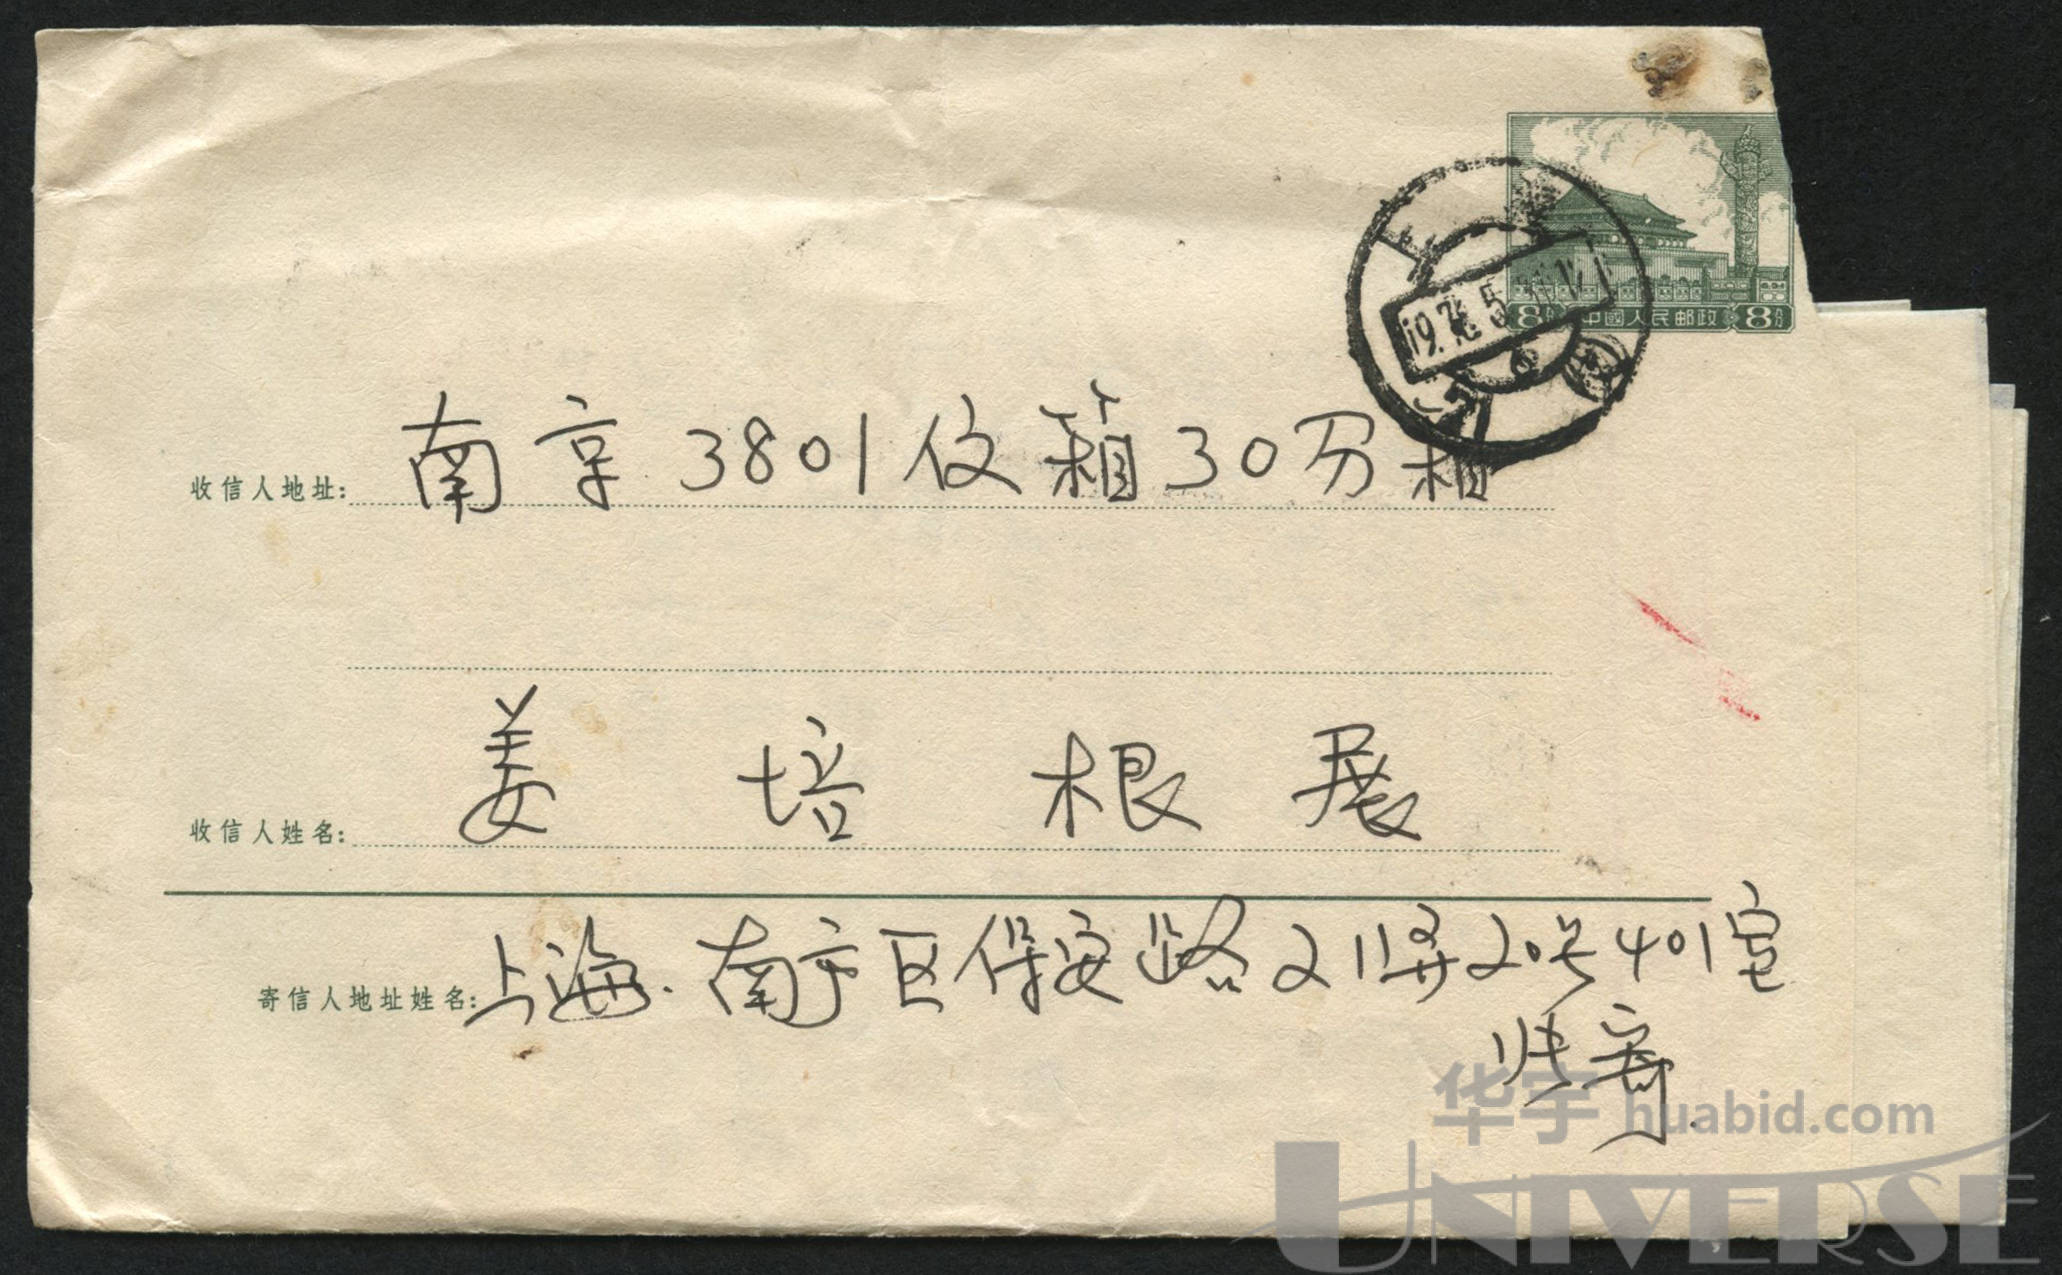 8分 中國人民邮政 8分
上
19.76.5
收信人地址: 南京 3801 仪箱 30 分箱
收信人姓名: 姜培根 展
寄信人地址姓名: 上海.南市区保安路21弄20号401室
寄
华宇 huabid.com
UNIVERSE